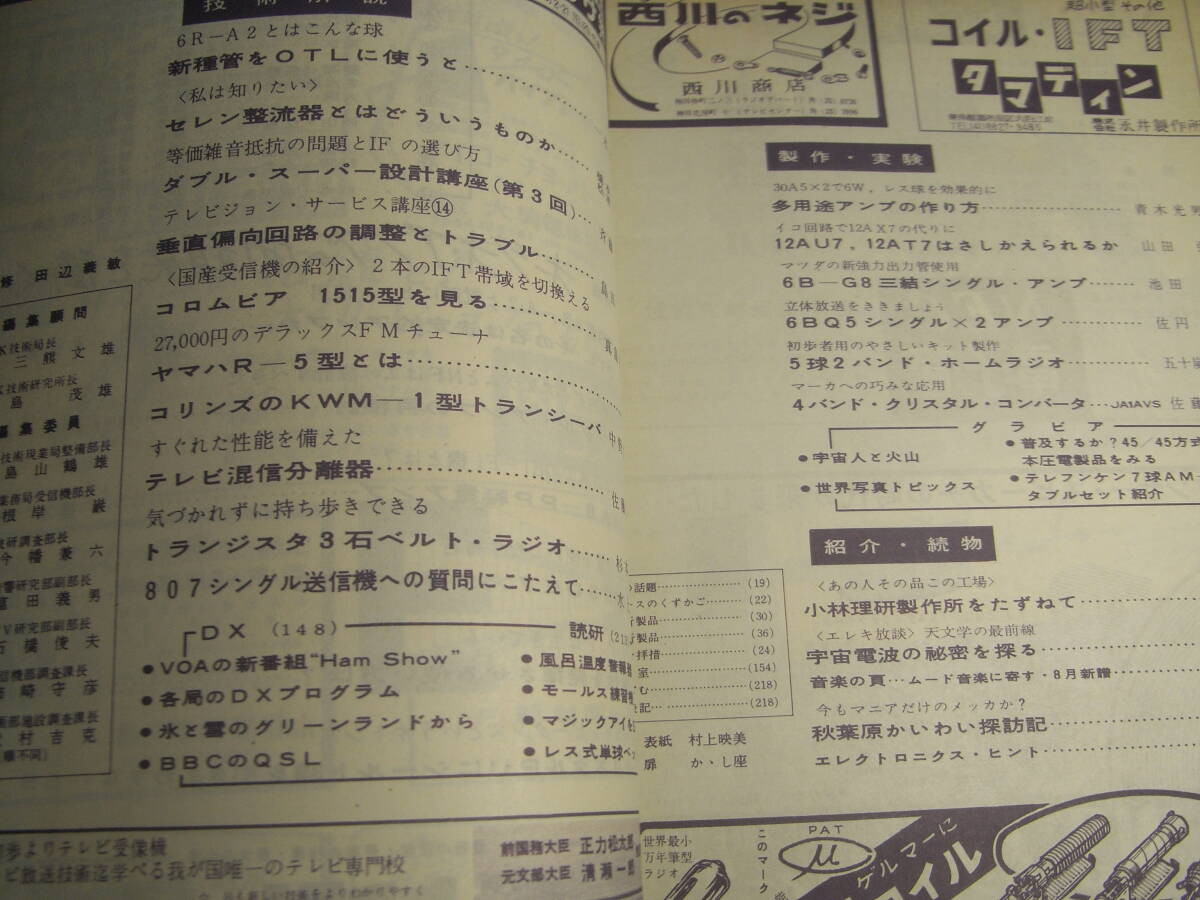 技術解説
6R－A2とはこんな球
新種管をOTLに使うと
〈私は知りたい〉
セレン整流器とはどういうものか
等価雑音抵抗の問題とIFの選び方
ダブル・スーパー設計講座(第3回)
テレビジョン・サービス講座⑭
垂直偏向回路の調整とトラブル
〈国産受信機の紹介〉 2本のIFT帯域を切換える
コロムビア 1515型を見る
27,000円のデラックスFMチューナ
ヤマハR－5型とは
コリンズのKWM－1型トランシーバ
すぐれた性能を備えた
テレビ混信分離器
気づかれずに持ち歩きできる
トランジスタ3石ベルト・ラジオ
807シングル送信機への質問にこたえて
DX (148)
読研
●VOAの新番組“Ham Show”
●各局のDXプログラム
●氷と雪のグリーンランドから
●BBCのQSL
●風呂温度警報
●モールス練習
●マジックアイ
●レス式単球ペ
修 田辺義敏
編集顧問
技術局長
三熊文雄
技術研究所長
島茂雄
編集委員
技術現業局整備部長
島山鶴雄
業務局受信機部長
根岸巌
技研調査部長
今幡兼六
音響研究部副部長
富田義男
TV研究部副部長
石橋俊夫
受信機部調査課長
高崎守彦
部施設調査課長
村吉克
順不同)
よりテレビ受像機
ビ放送技術迄学べる我が国唯一のテレビ専門校
前国務大臣 正力松太郎
元文部大臣 清瀬一郎
西川のネジ
西川商店
超小型その他
コイル・IFT
タマディン
永井製作所
製作・実験
30A5×2で6W，レス球を効果的に
多用途アンプの作り方 青木光男
イコ回路で12AX7の代りに
12AU7，12AT7はさしかえられるか 山田
マツダの新強力出力管使用
6B－G8三結シングル・アンプ 池田
立体放送をききましょう
6BQ5シングル×2アンプ 佐円
初歩者用のやさしいキット製作
5球2バンド・ホームラジオ 五十嵐
マーカへの巧みな応用
4バンド・クリスタル・コンバータ JA1AVS 佐藤
グラビア
●宇宙人と火山
●世界写真トピックス
●普及するか？45/45方式
本圧電製品をみる
●テレフンケン7球AM－
タブルセット紹介
紹介・続物
〈あの人その品この工場〉
小林理研製作所をたずねて
〈エレキ放談〉 天文学の最前線
宇宙電波の秘密を探る
音楽の頁…ムード音楽に寄す・8月新譜
今もマニアだけのメッカか？
秋葉原かいわい探訪記
エレクトロニクス・ヒント
話題 (19)
ースのくずかご (22)
製品 (30)
製品 (36)
拝措 (24)
室 (154)
む (218)
記 (218)
表紙 村上映美
扉 かゝし座
世界最小
万年筆型
ラジオ
このマーク
PAT
μ
ゲルマーに
コイル